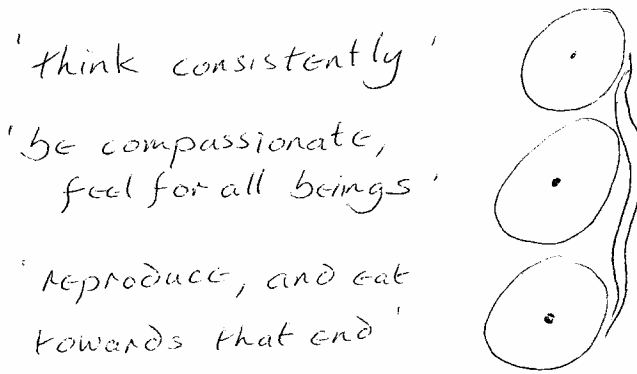 'think consistently'
'be compassionate,
feel for all beings'
'reproduce, and eat
towards that end'